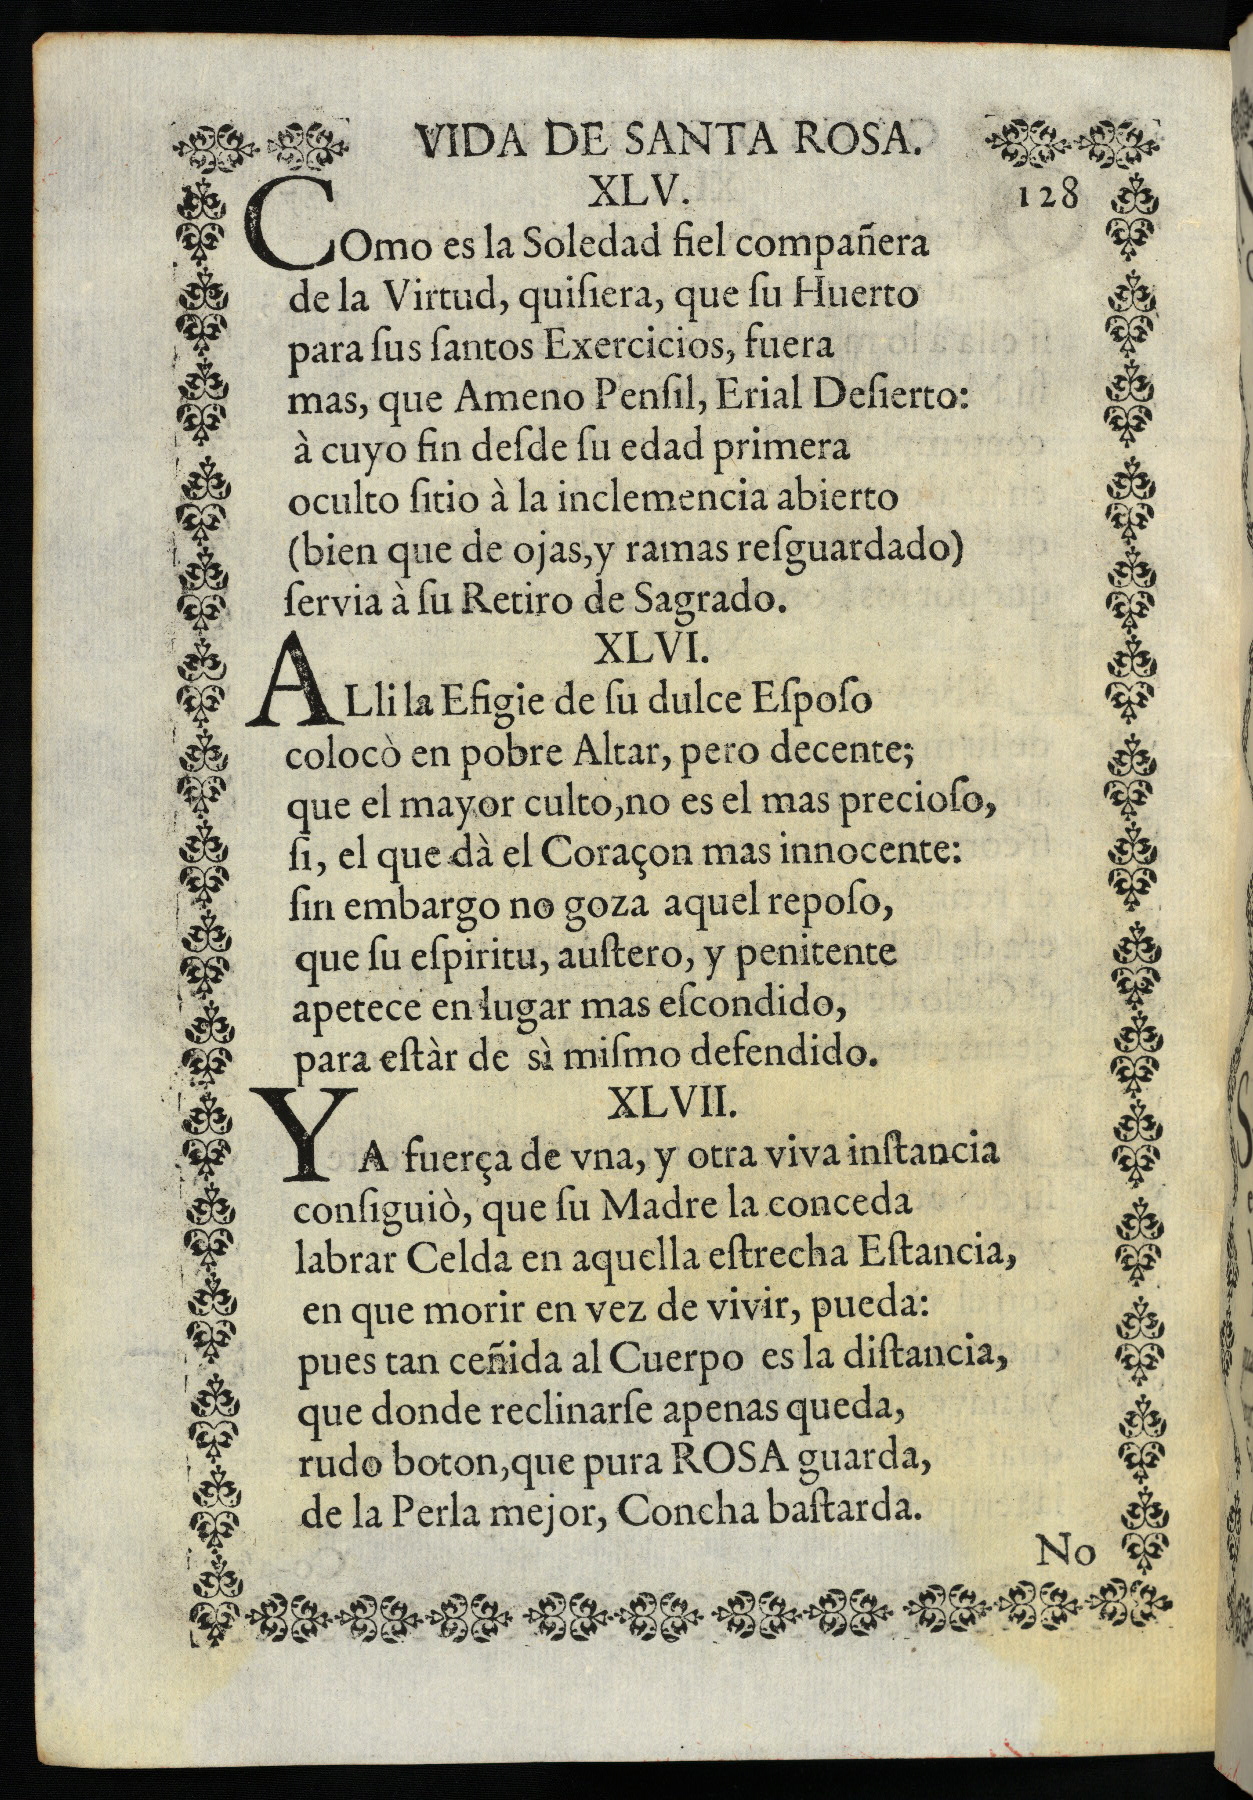 VIDA DE SANTA ROSA.
XLV.
128
COmo es la Soledad fiel compañera
de la Virtud, quiſiera, que ſu Huerto
para ſus ſantos Exercicios, fuera
mas, que Ameno Penſil, Erial Deſierto:
à cuyo fin deſde ſu edad primera
oculto ſitio à la inclemencia abierto
(bien que de ojas,y ramas reſguardado)
ſervia à ſu Retiro de Sagrado.
XLVI.
ALli la Efigie de ſu dulce Eſpoſo
colocò en pobre Altar, pero decente;
que el mayor culto,no es el mas precioſo,
ſi, el que dà el Coraçon mas innocente:
ſin embargo no goza aquel repoſo,
que ſu eſpiritu, auſtero, y penitente
apetece en lugar mas eſcondido,
para eſtàr de sì miſmo defendido.
XLVII.
YA fuerça de vna, y otra viva inſtancia
conſiguiò, que ſu Madre la conceda
labrar Celda en aquella eſtrecha Eſtancia,
en que morir en vez de vivir, pueda:
pues tan ceñida al Cuerpo es la diſtancia,
que donde reclinarſe apenas queda,
rudo boton,que pura ROSA guarda,
de la Perla mejor, Concha baſtarda.
No